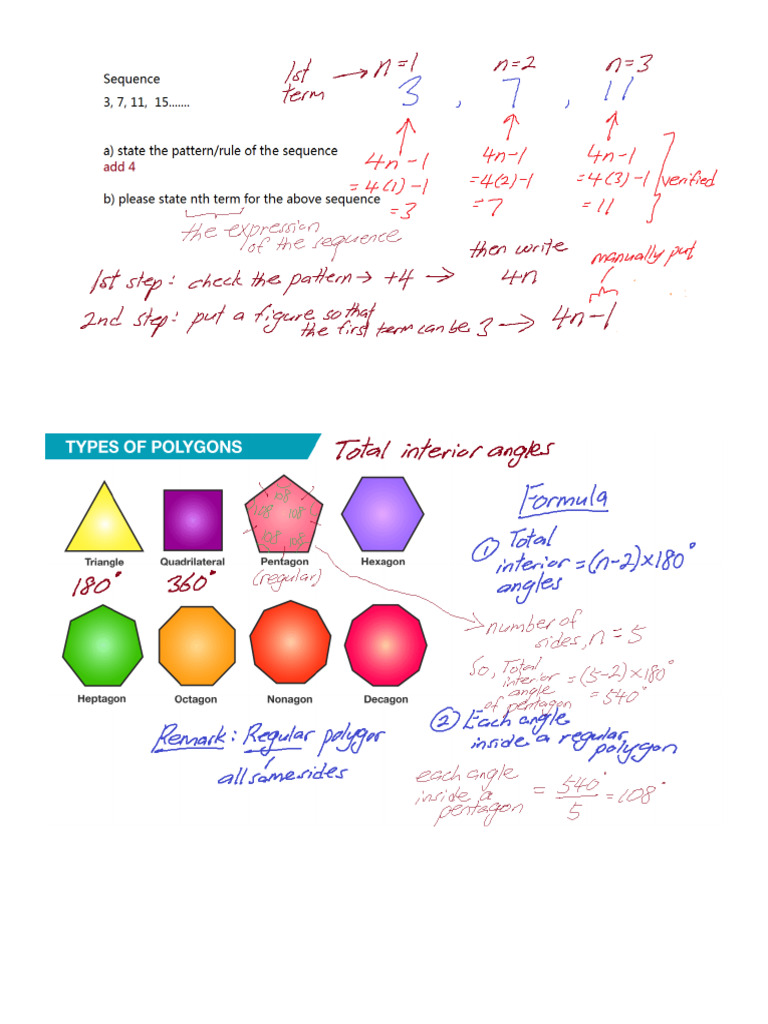 Sequence
3, 7, 11,  15.......
1st term → n=1
n=2
n=3
3 , 7 , 11
a) state the pattern/rule of the sequence
add 4
4n-1
=4(1)-1
=3
4n-1
=4(2)-1
=7
4n-1
=4(3)-1
=11
verified
b) please state nth term for the above sequence
the expression
of the sequence
1st step: check the pattern → +4 → then write 4n
manually put
2nd step: put a figure so that
the first term can be 3 → 4n-1
TYPES OF POLYGONS
Total interior angles
108
108
108
108
108
Triangle
Quadrilateral
Pentagon
Hexagon
180°
360°
(regular)
Heptagon
Octagon
Nonagon
Decagon
Remark: Regular polygor
all same sides
Formula
① Total
interior = (n-2)×180°
angles
number of
sides, n = 5
So, Total
interior = (5-2)×180°
angle = 540°
of pentagon
② Each angle
inside a regular
polygon
each angle
inside a = 540°/5 = 108°
pentagon